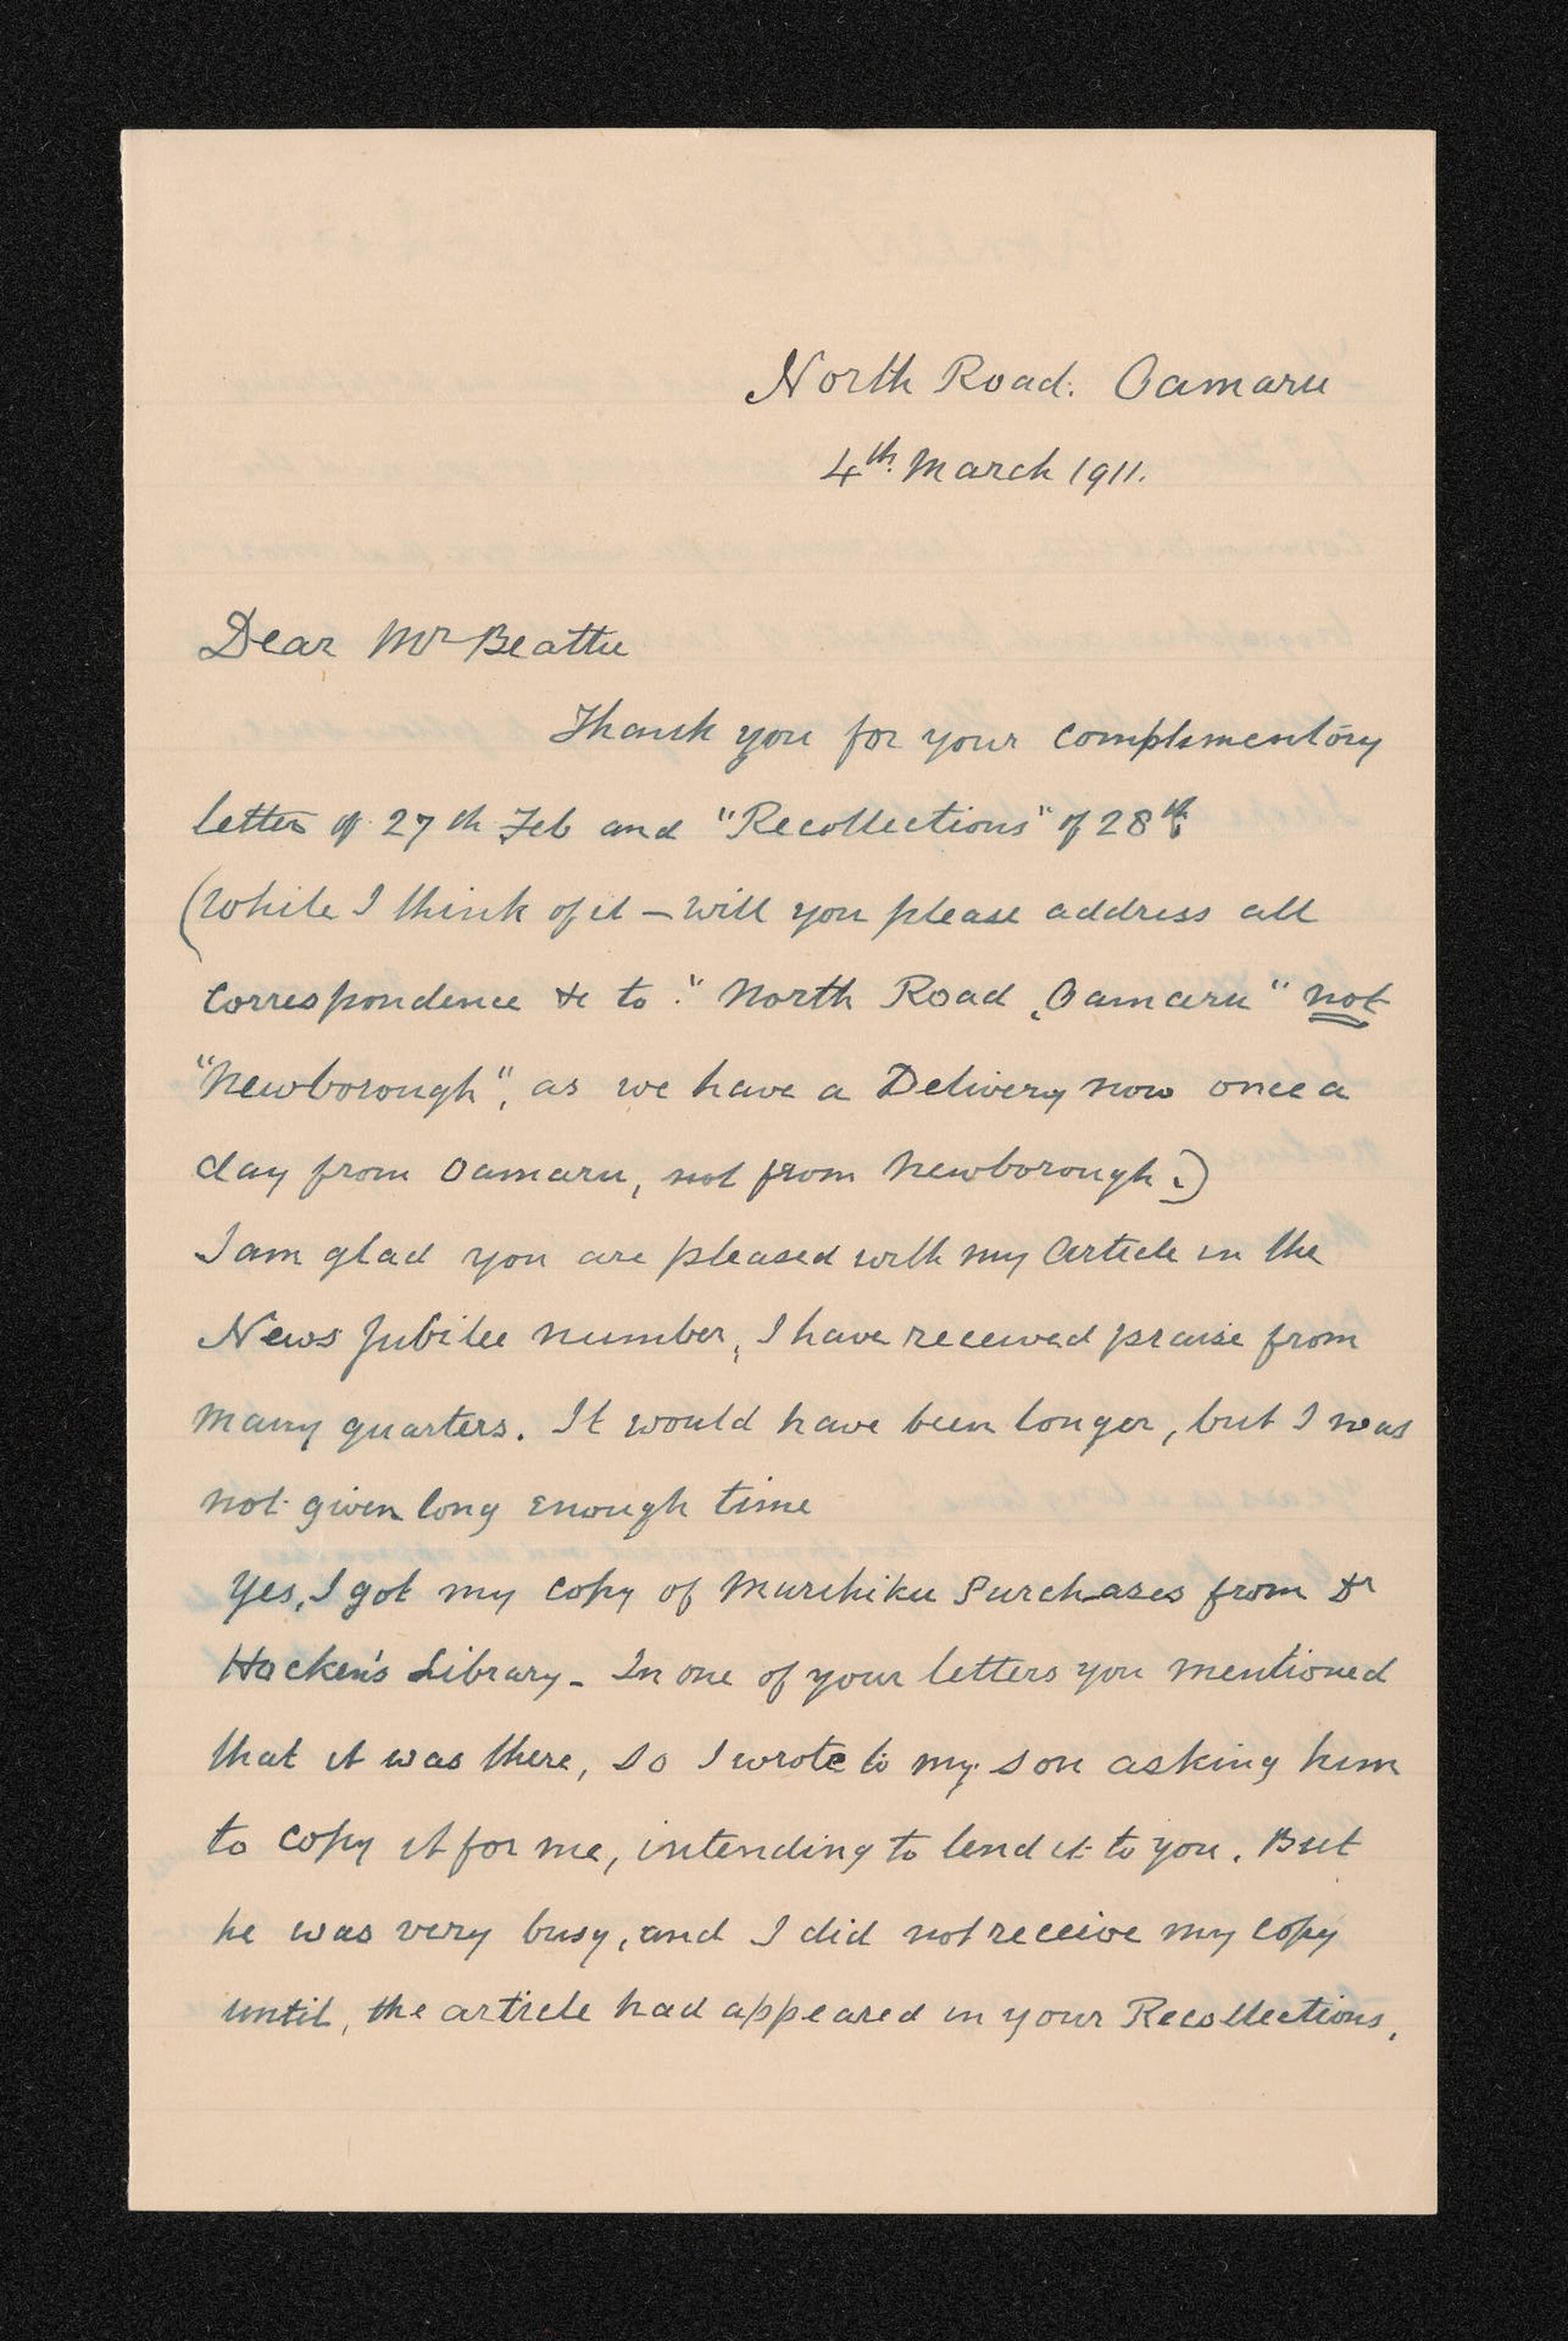 North Road. Oamaru
4th. March 1911.
Dear Mr Beattie
Thank you for your complimentory
letter of 27th Feb and "Recollections" of 28th.
(While I think of it – will you please address all
Correspondence &c to "North Road, Oamaru" not
"Newborough", as we have a Delivery now once a
day from Oamaru, not from Newborough.)
I am glad you are pleased with my Article in the
News Jubilee number, I have received praise from
many quarters. It would have been longer, but I was
not given long enough time
Yes, I got my copy of Murihiku Purchases from Dr
Hocken's Library - In one of your letters you mentioned
that it was there, so I wrote to my son asking him
to copy it for me, intending to lend it to you. But
he was very busy, and I did not receive my copy
until, the article had appeared in your Recollections.